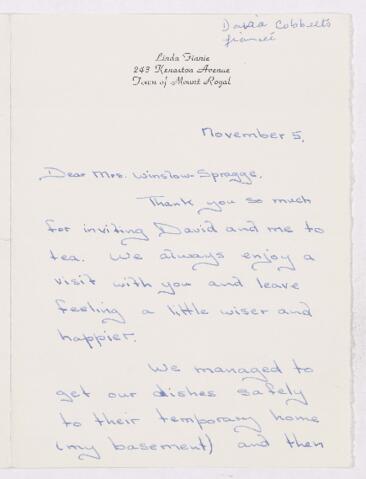 David Cobbetts
fiancée
Linda Finnie
243 Kenaston Avenue
Town of Mount Royal
November 5,
Dear Mrs. Winslow-Spragge,
Thank you so much
for inviting David and me to
tea. We always enjoy a
visit with you and leave
feeling a little wiser and
happier.
We managed to
get our dishes safely
to their temporary home
(my basement) and then